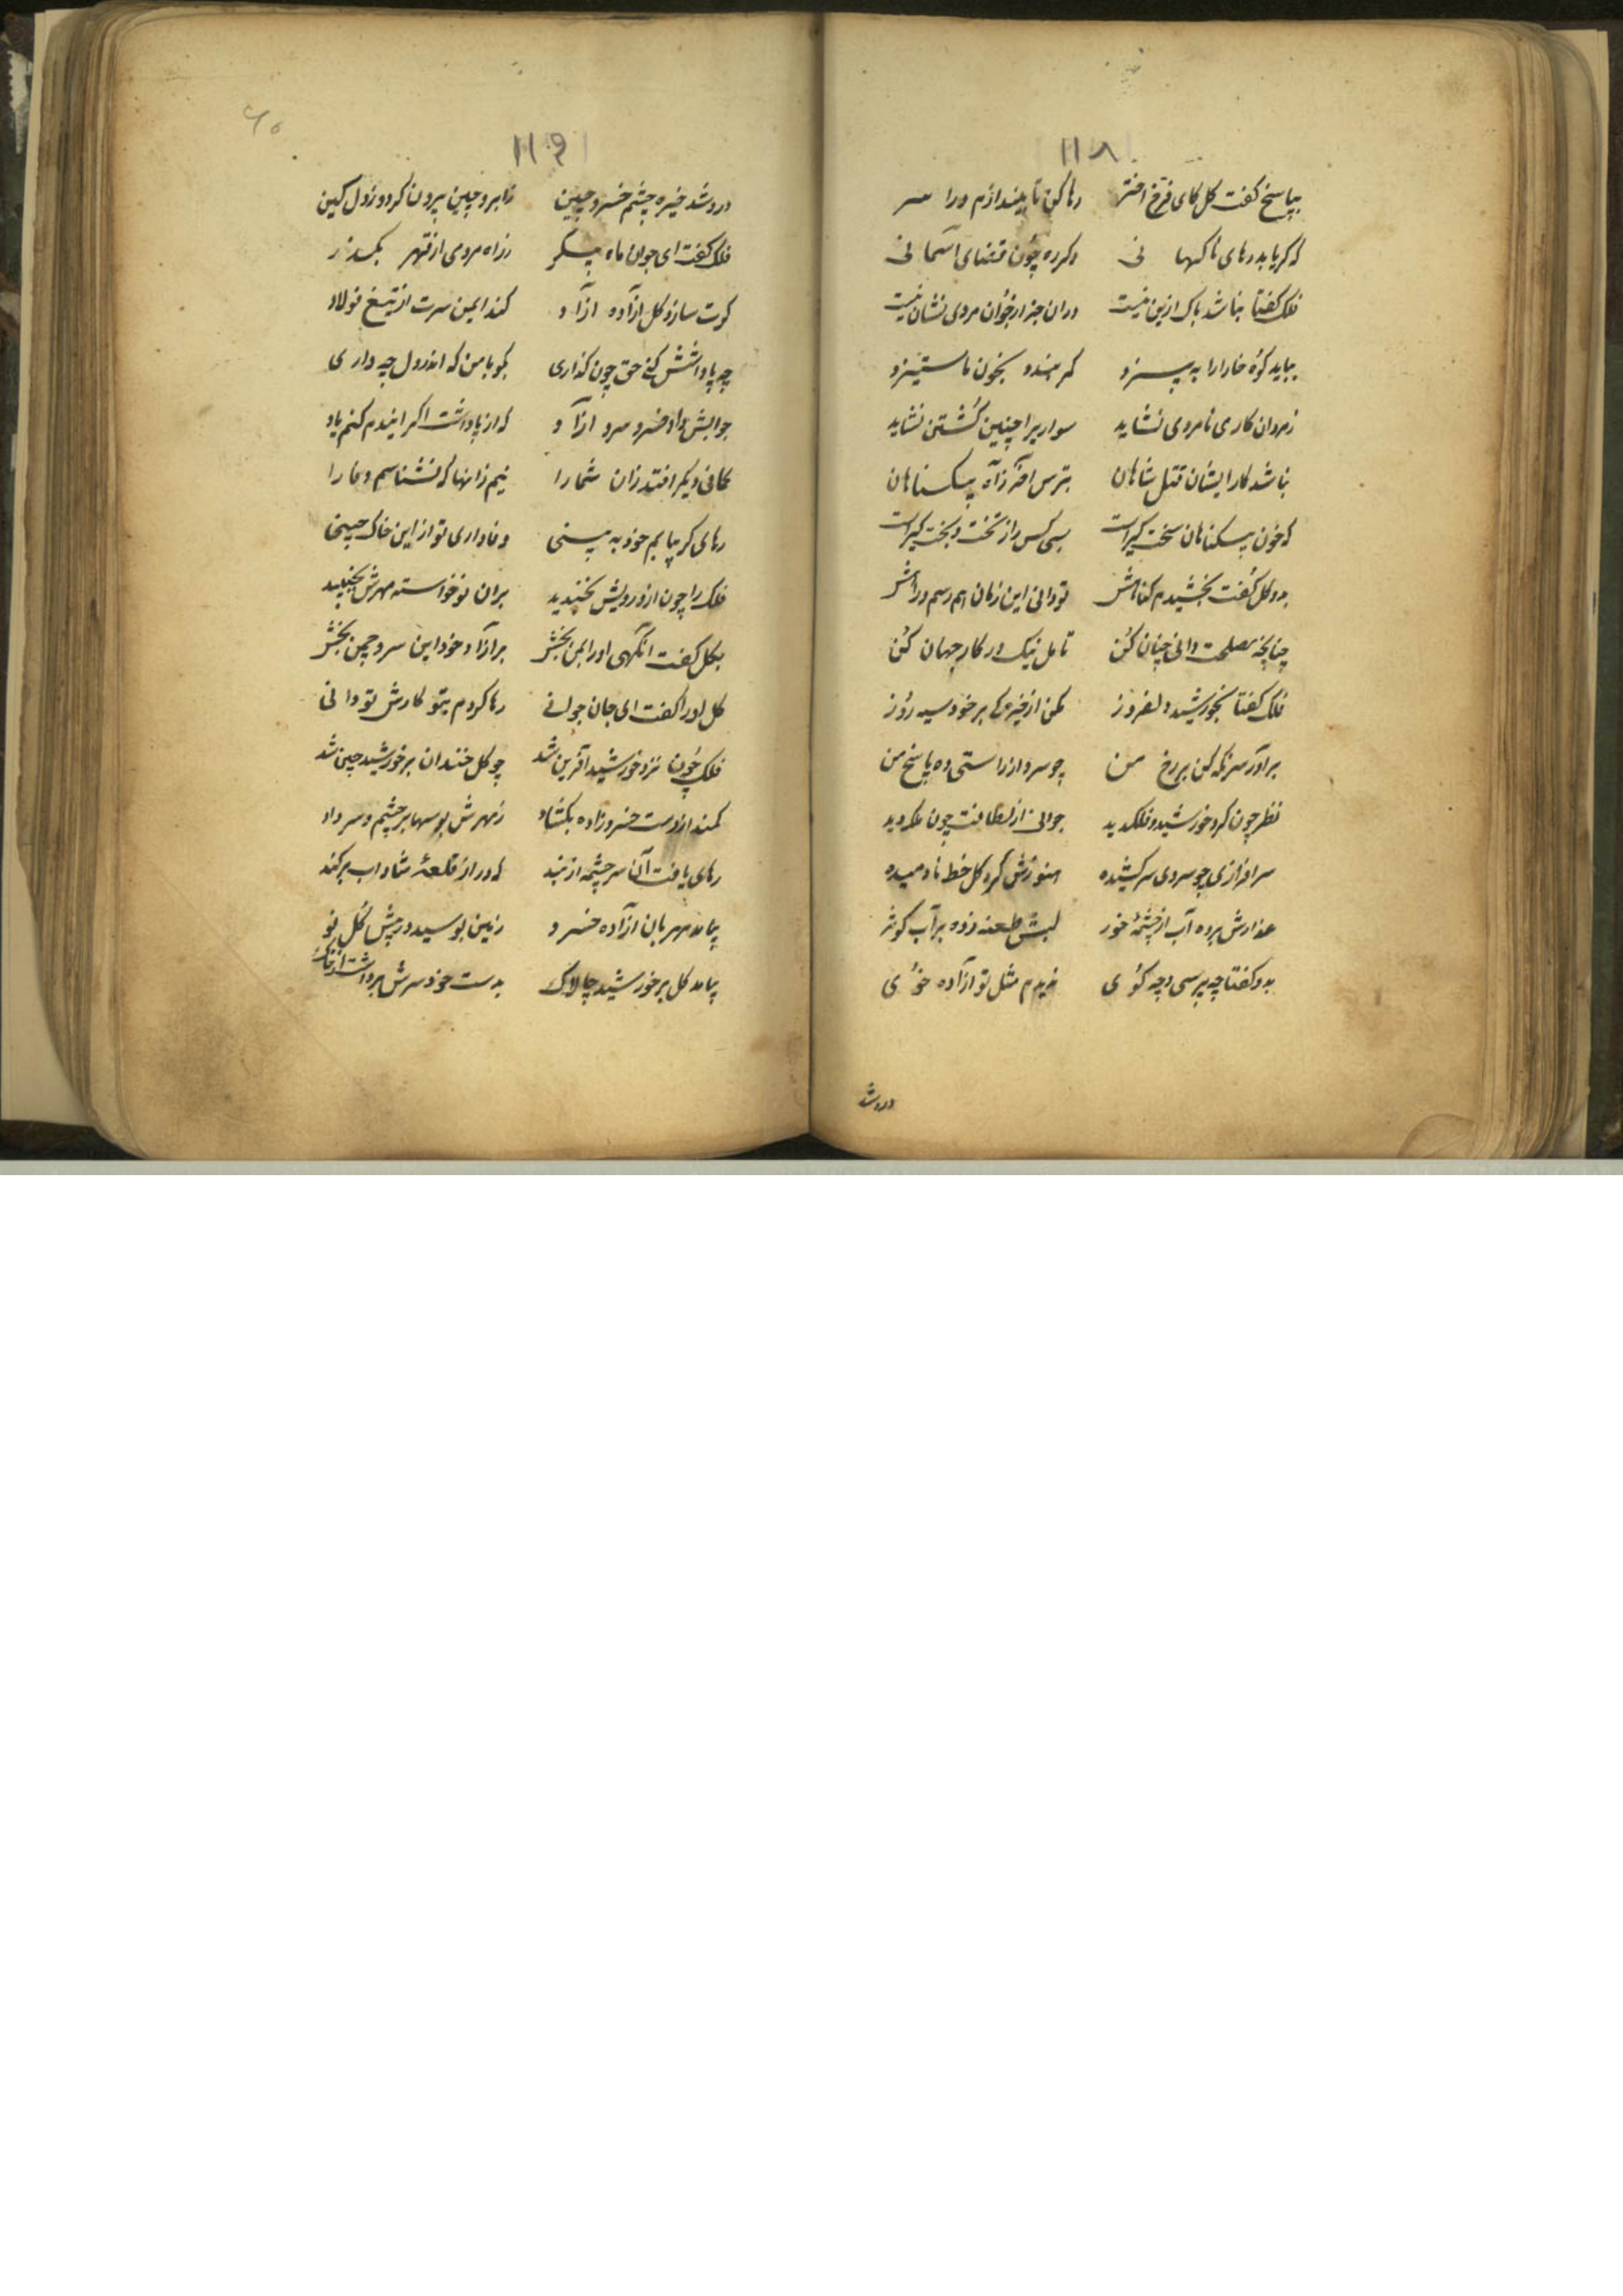 ۱۱۸
بپاسخ گفت گل کای فرخ اختر رها کن تا بیندازم ورا سر
که گر یابد رهای ناکهانی دگرره چون قضای آسمانی
فلک گفتا نباشد باک ازین نیست دران جز ارخوان مردی نشان نیست
بباید کوه خارارا به پسزد کمر بندد بخون ما ستیزد
زمردان کاری نامردی نشاید سواریرا چنین کشتن نشاید
نباشد کار ایشان قتل شاهان بترس آخر زآه بیکناهان
که خون بیکناهان سخت گیراست بسی کس را ز تخت و بخت گیراست
بدو گل گفت بخشیدم کناهش تو دانی این زمان هم رسم و راهش
چنانچه مصلحت دانی چنان کن تامل نیک در کار جهان کن
فلک گفتا بخورشید دلفروز مکن از خیرگی بر خود سیه روز
برآور سر نکه کن بر رخ من چو سرو از راستی ده پاسخ من
نظر چون کرد خورشید و فلک دید جوانی از لطافت چون ملک دید
سرافرازی چو سروی سرکشیده هنوزش کرد گل خط نادمیده
عذارش برده آب از چشمهٔ خور لبش طعنه زده بر آب کوثر
بدو گفتا چه پرسی و چه کوئی ندیدم مثل تو آزاده خوئی
درو شد
۱۱۹
درو شد خیره چشم خسرو چین ز ابرو چین برون کرد و ز دل کین
فلک گفت ای جوان ماه پیکر ز راه مردی از قهر بگذر
کرت سازد گل آزاده آزاد کند ایمن سرت از تیغ فولاد
چه پاداشش کنی حق چون گذاری بگو با من که اندر دل چه داری
جوابش داد خسرو سرو آزاد که از پاداشت اگر ایندم کنم یاد
کمانی دیگر افتد زان شمارا نیم زانها که نشناسم وفا را
رهای گر بیابم خود به بینی وفاداری تو از این خاک چینی
فلک را چون ازو رویش بخندید بران نوخواسته مهرش بجنبید
بگل گفت آنگهی اورا بمن بخش بر آزاد خود این سرو چمن بخش
گل اورا گفت ای جان جوانی رها کردم بتو کارش تو دانی
فلک چون نزد خورشید آفرین شد چو گل خندان بر خورشید چین شد
کمند از دست خسروزاده بکشاد ز مهرش بوسها بر چشم و سر داد
رهای یافت آن سرچشمه از بند که در از قلعهٔ شاداب برکند
بیامد مهربان آزاده خسرو زمین بوسید در پیش گل نو
بیامد گل بر خورشید چالاک بدست خود سرش برداشت از خاک